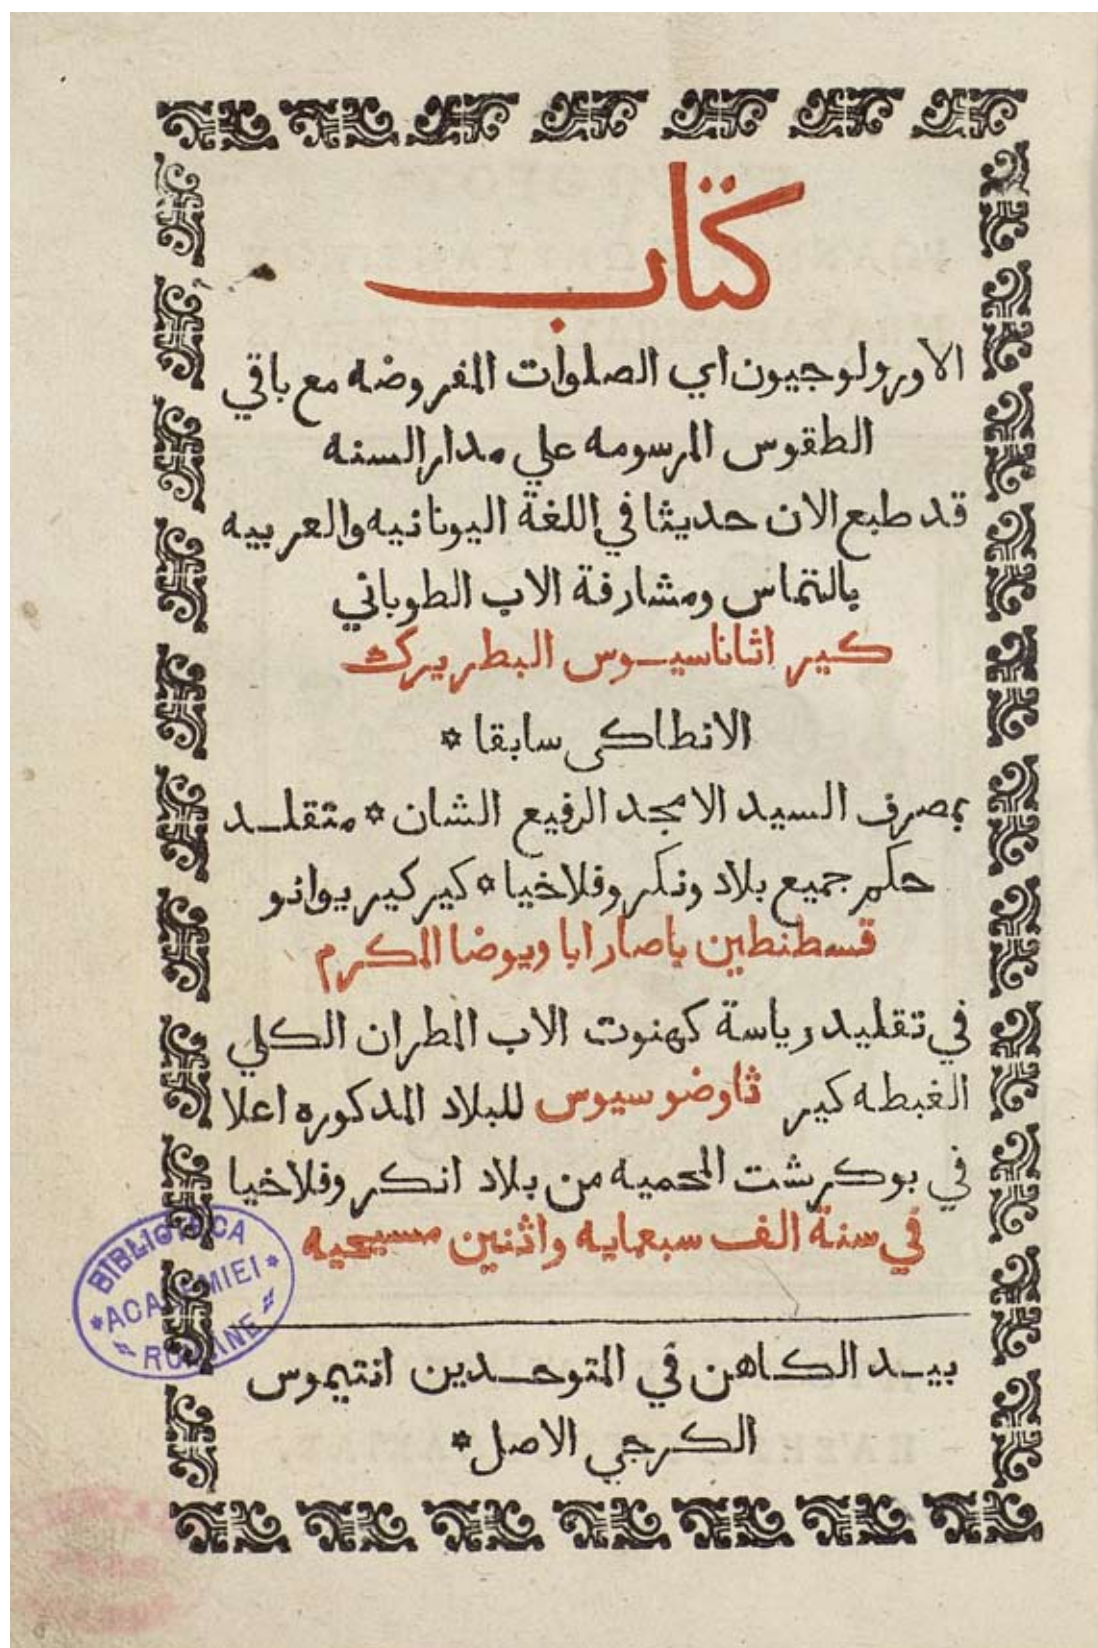 كتاب
الاورولوجيون اي الصلوات المفروضه مع باقي
الطقوس المرسومه علي مدار السنه
قد طبع الان حديثا في اللغة اليونانيه والعربيه
بالتماس ومشارفة الاب الطوباني
كير اثاناسيوس البطريرك
الانطاكي سابقا ✡
بمصرف السيد الامجد الرفيع الشان ✡ متقلد
حكم جميع بلاد ونكر وفلاخيا ✡ كير كير يوانو
قسطنطين باصارابا ويوضا المكرم
في تقليد رياسة كهنوت الاب المطران الكلي
الغبطه كير ثاوضوسيوس للبلاد المدكوره اعلا
في بوكرشت المحميه من بلاد انكر وفلاخيا
في سنة الف سبعمايه واثنين مسيحيه
BIBLIOTECA
ACADEMIEI
ROMÂNE
بيد الكاهن في المتوحدين انتيموس
الكرجي الاصل ✡